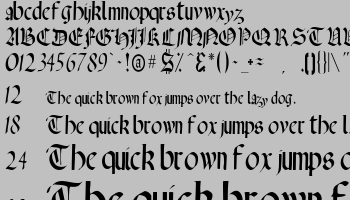 abcdefghijklmnopqrstuvwxyz
ABCDEFGHIJKLMNOPQRSTUV
0123456789`~!@#$%^&*()-_+=,.[]{}|\"
12 The quick brown fox jumps over the lazy dog.
18 The quick brown fox jumps over the l
24 The quick brown fox jumps
The quick brown f